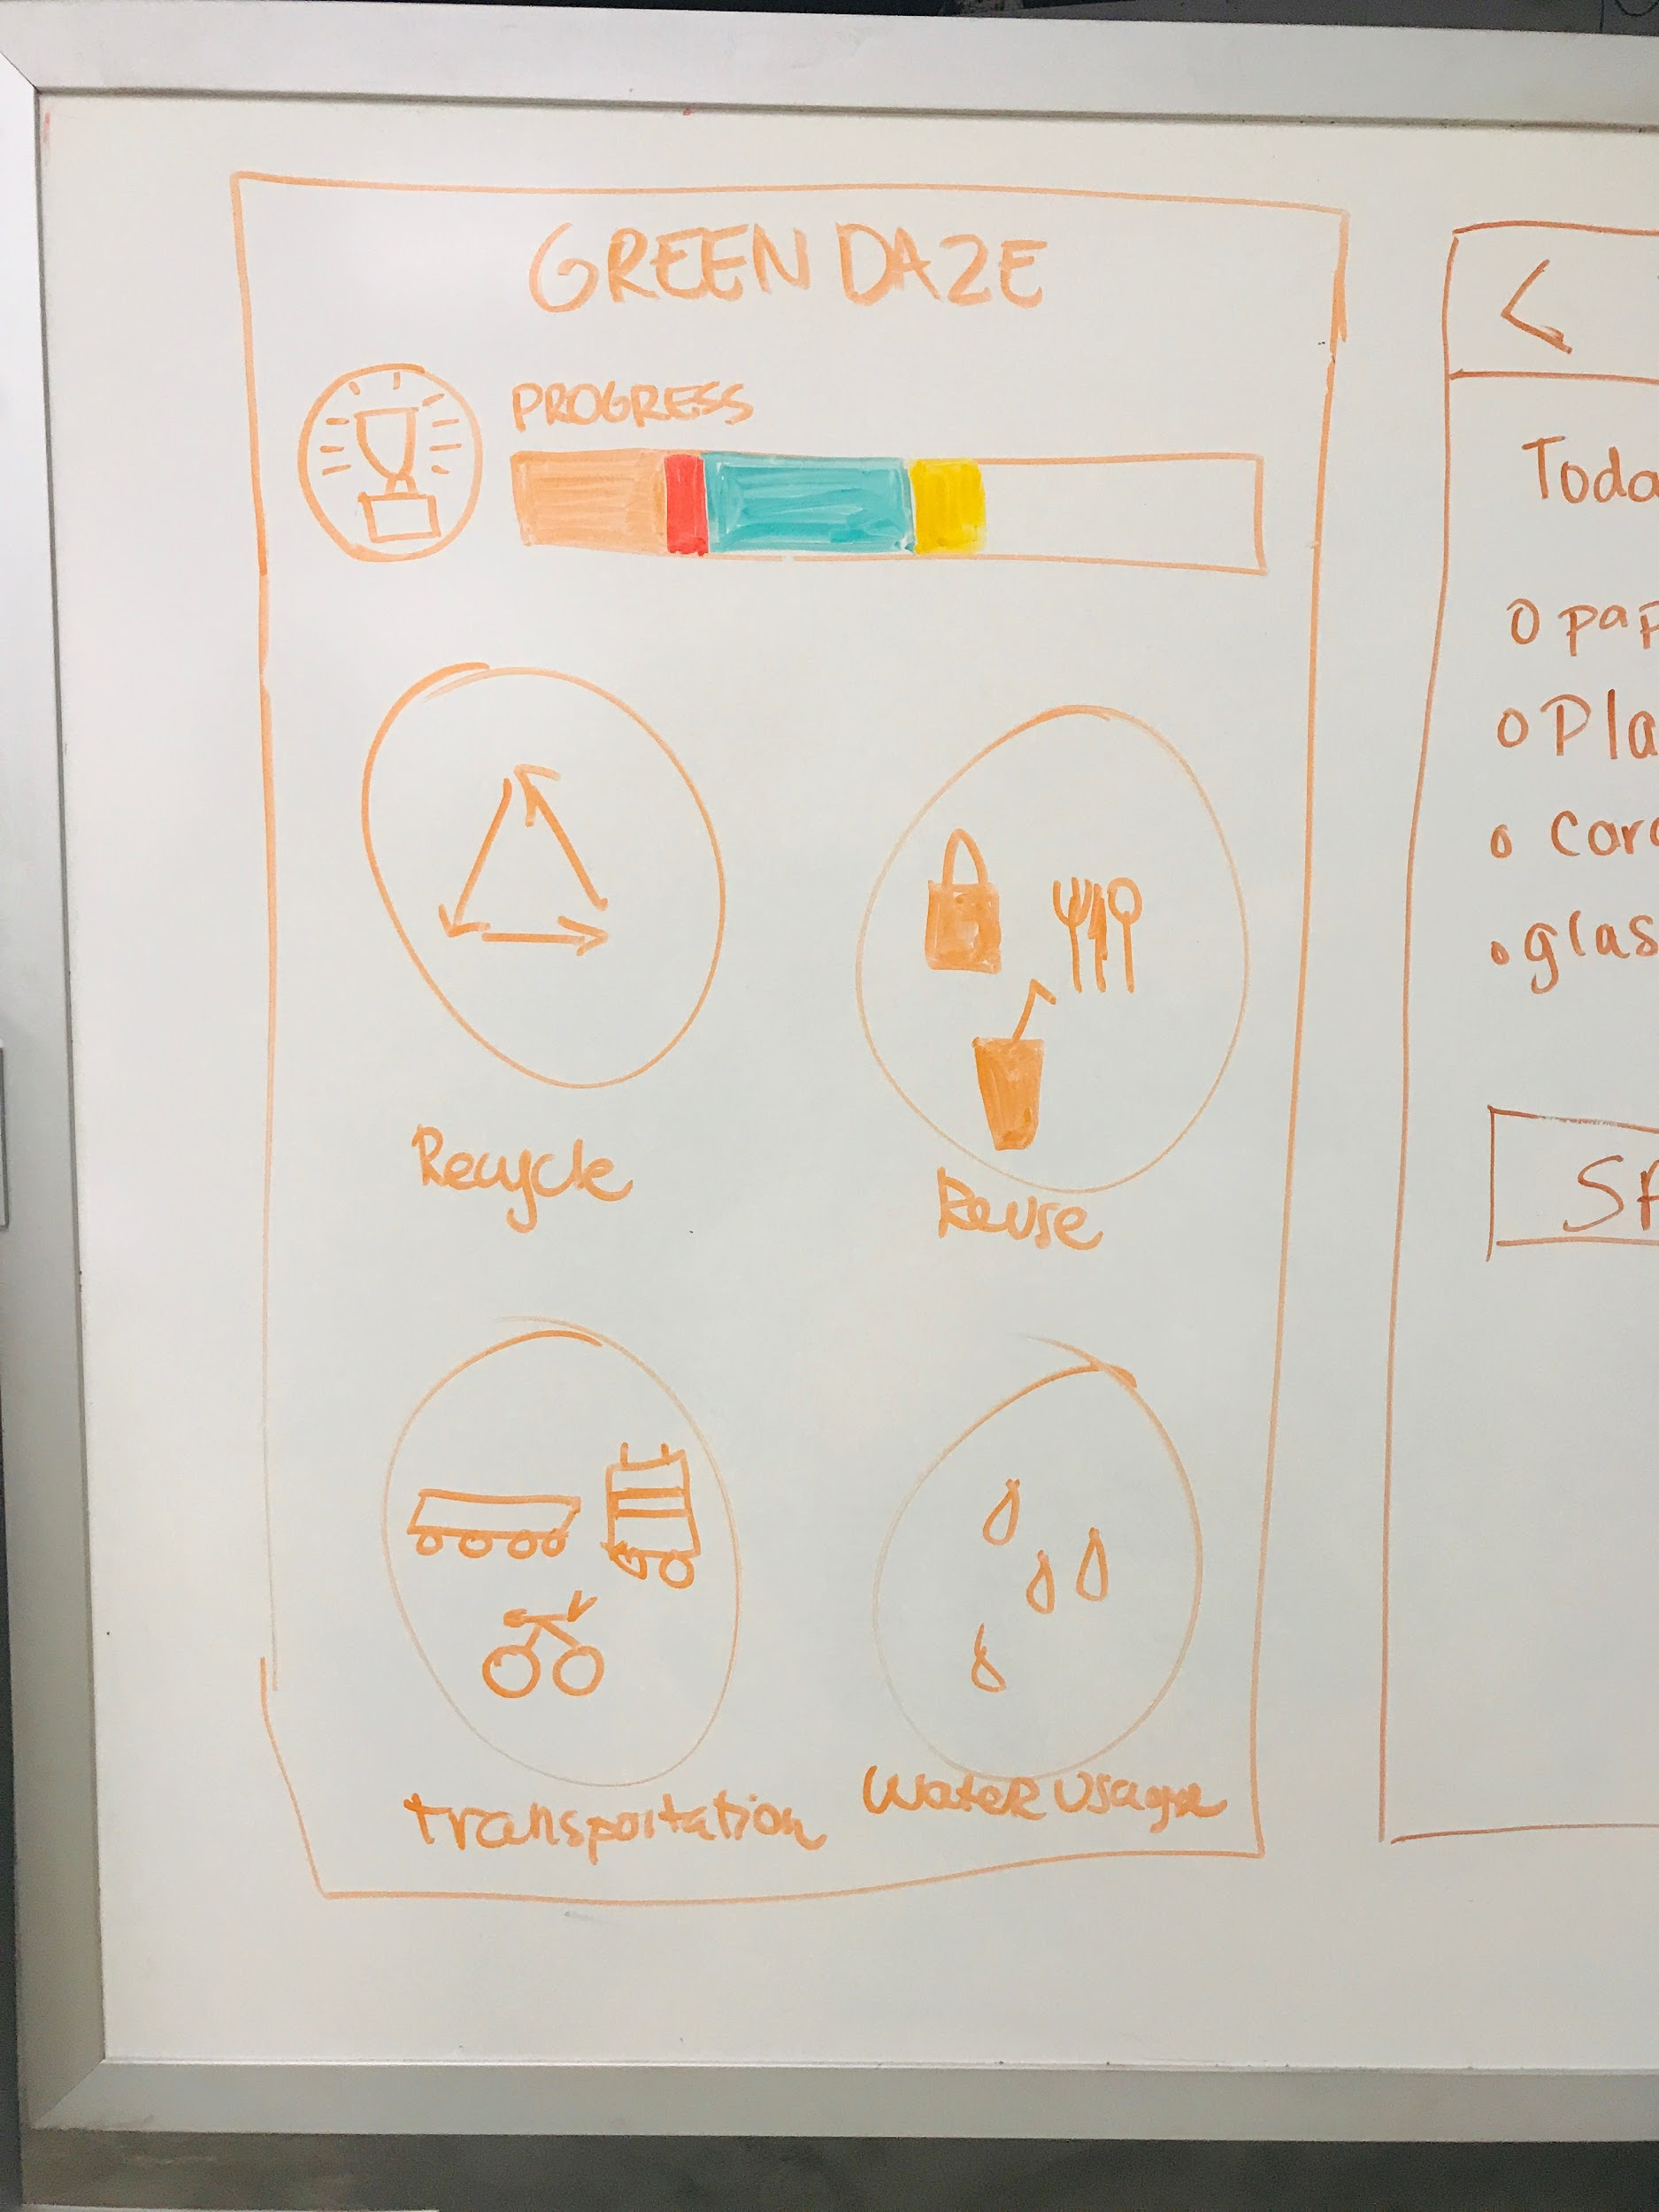 GREEN DAZE
PROGRESS
Recycle
Reuse
transportation
Water Usage
<
Toda
pap
Pla
glas